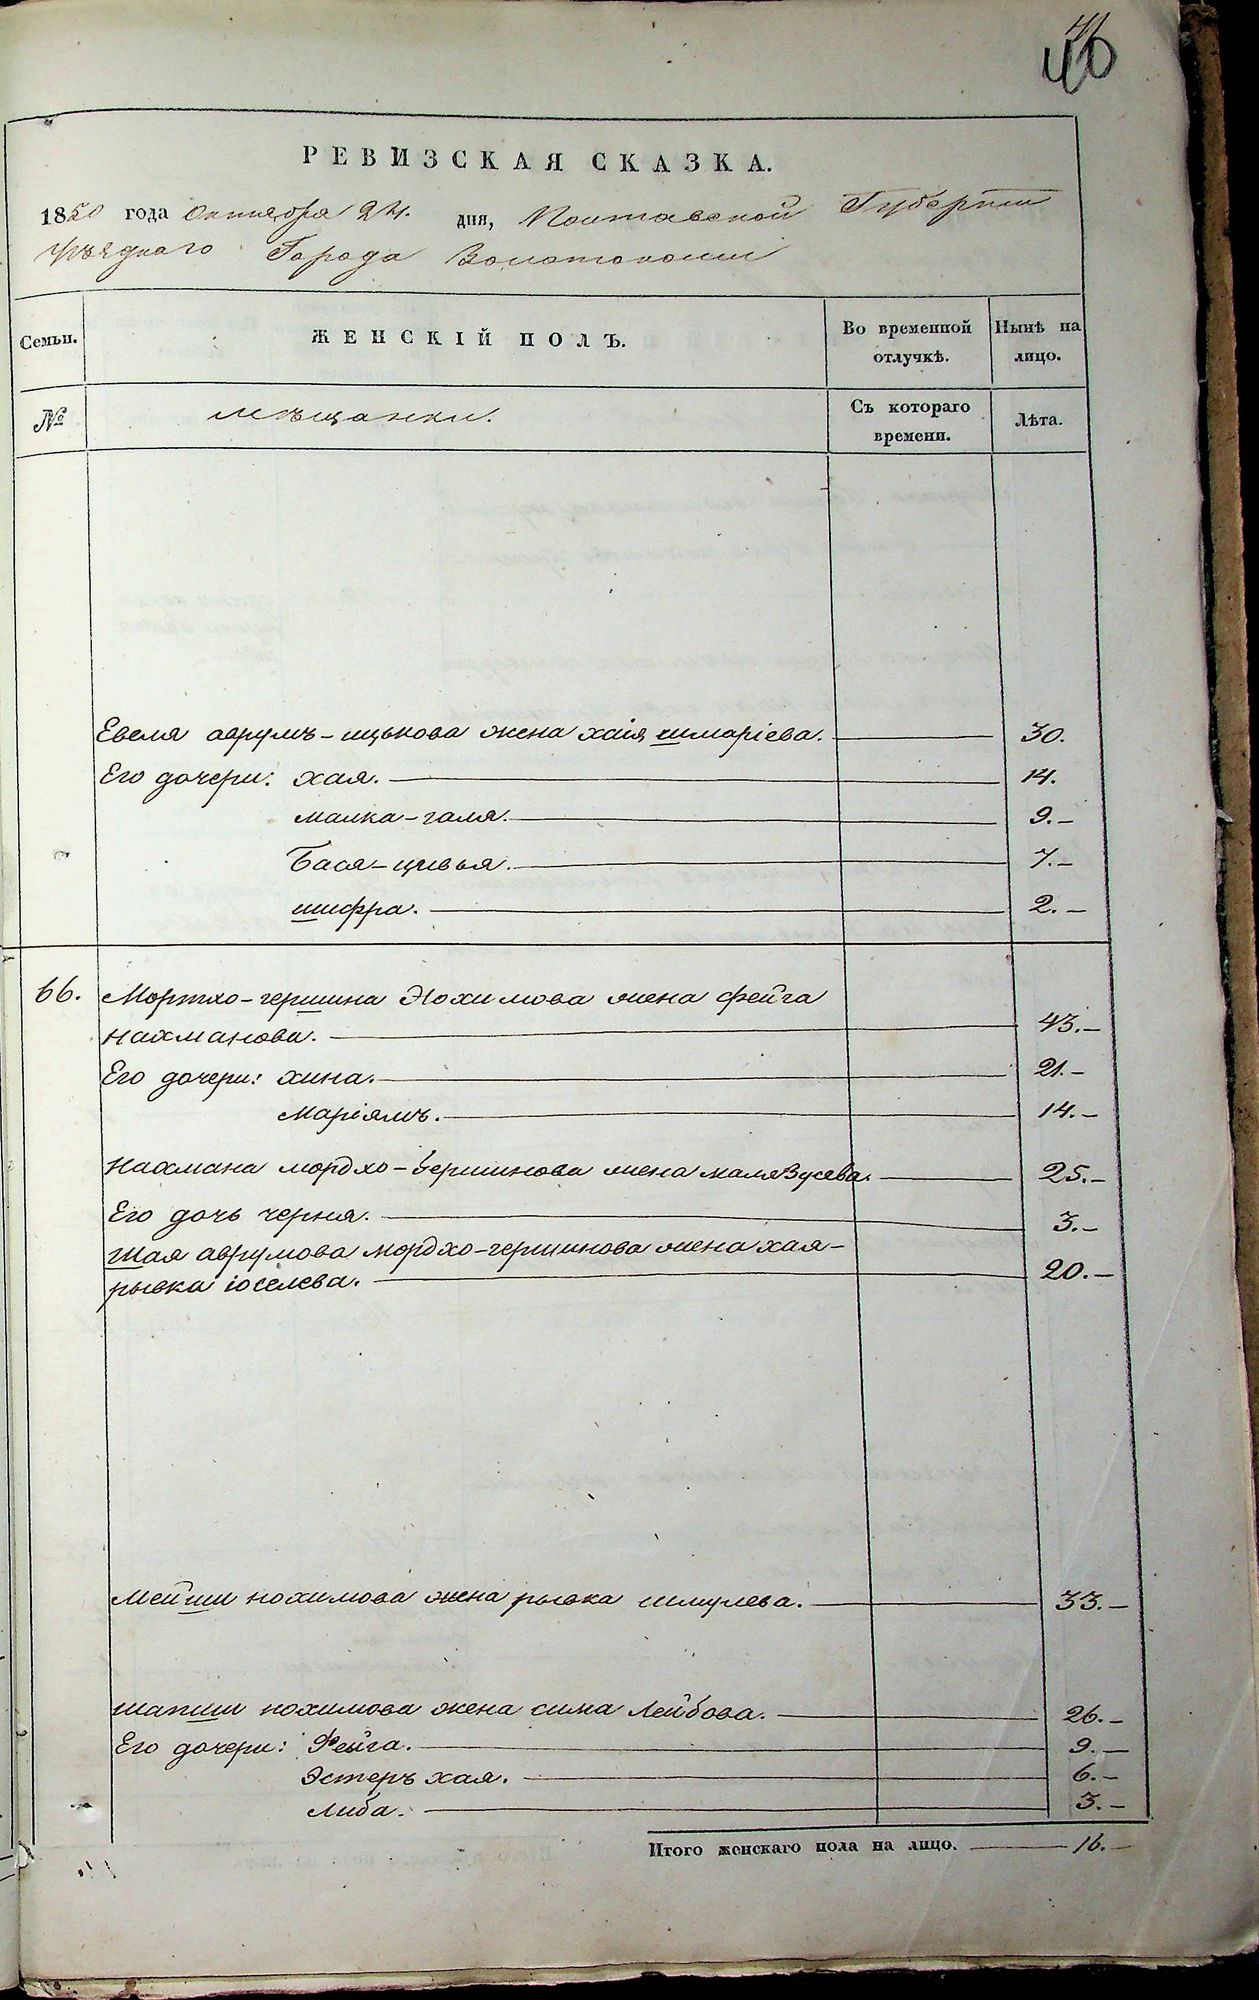 41
40
РЕВИЗСКАЯ СКАЗКА.
1850 года Октября 24. дня, Полтавской Губернии
Уѣзднаго Города Золотоноши
Семьи. ЖЕНСКІЙ ПОЛЪ. Во временной отлучкѣ. Нынѣ на лицо.
№ мѣщанки. Съ котораго времени. Лѣта.
Евеля аврумъ-ицькова жена хаія шмаріева. 30.
Его дочери: хая. 14.
малка-галя. 9.-
Бася-цивья. 7.-
шифра. 2.-
66. Мортхо-гершина Нохимова жена фейга
нахманова. 43.-
Его дочери: хина. 21.-
Маріямъ. 14.-
Нахмана мордхо-гершинова жена маля Вусева. 25.-
Его дочь черня. 3.-
Шая аврумова мордхо-гершинова жена хая-
рывка іоселева. 20.-
Мейши нохимова жена рывка шмулева. 33.-
шапши нохимова жена сима Лейбова. 26.-
Его дочери: Фейга. 9.-
Эстеръ хая. 6.-
Либа. 3.-
Итого женскаго пола на лицо. 16.-